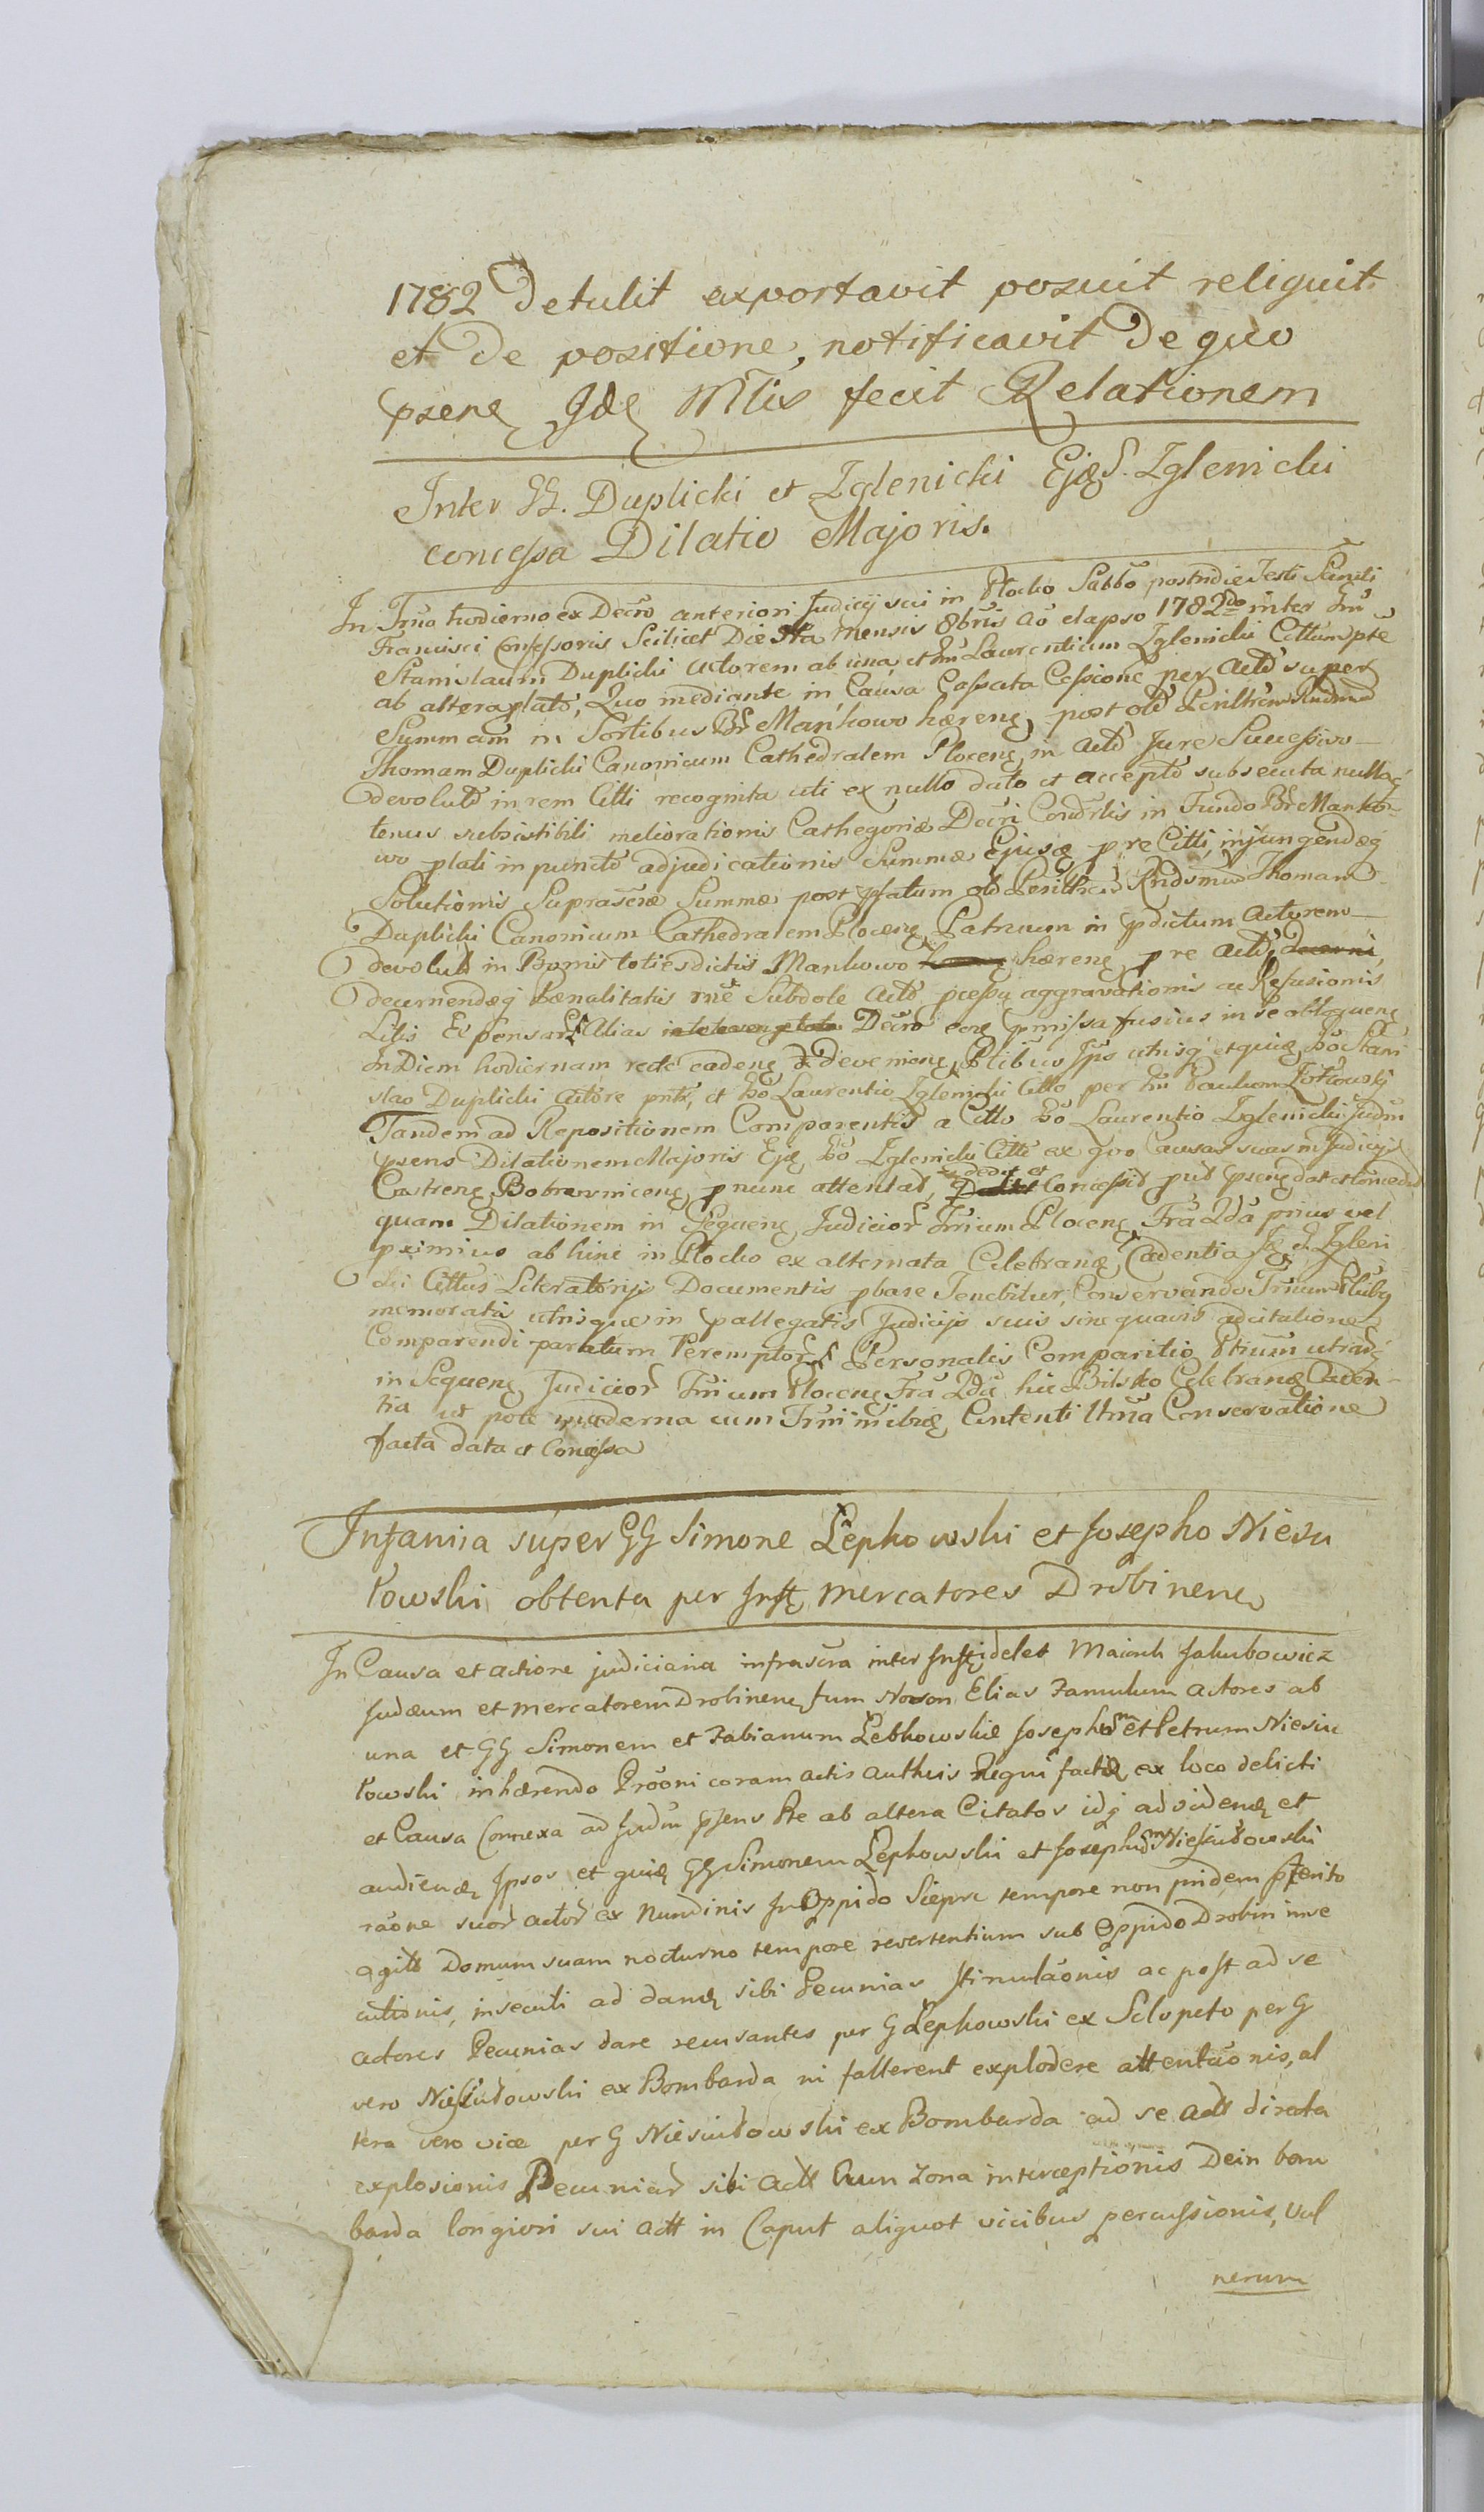 1782 detulit exportavit posuit reliquit
et de positione, notificavit de quo
psenę Idę Mtlis fecit Relationem
Inter GG. Duplicki et Zglenicki Ejąd. Zglenicki
concessa Dilatio Majoris.
In Trno hodierno ex Decro anteriori Judicij sui in Plocko Sabbo postridie Festi Sancti
Francisci Confessoris Scilicet Die mensis 8bris ao elapso 1782do inter
Stanislaum Duplicki actorem ab una et Laurentium Zglenicki Cittum pte
ab altera plato, Quo mediante in Causa Cassata Cessione per Actu super
Summam in Sortibus Mańkowo hærenę post olb
Thomam Duplicki Canonicum Cathedralem Plocenę in Actu Jure Successivo
devolutu in rem Citti recognita uti ex nullo dato et accepto subsecuta nullaq
tenus subsistibili meliorationis Cathegoriæ Decri Condrlis in Fundo Manko-
wo plati in puncto adjudicationis Summæ Ejusę p re Citti, injungendęq
Solutionis Suprascræ Summæ post pfatum olb Rndsmum Thomam
Duplicki Canonicum Cathedralem Plocenę Patruum in pdictum Actorem
devolut in Bonis totiesdictis Mankowo hærenę p re Actu, decerni,
decernendęq Pænalitatis Subdole Actu pcessu aggravationis ac Refusionis
Litis Expensar Alias Decro eorę pmissa fusius in se obloquenę
In Diem hodiernam recte cadenę devenienę Ptibus Ips utrisq etquię Stani
slao Duplicki Actore pnte, et Laurentio Zglenicki Citto per Paulum
Tandem ad Repositionem Comparentis a Citto Laurentio Zglenicki Judm
psens Dilationem Majoris Ejdę Zglenicki Citti ex quo Causas suas in Judicijs
Castrenę Bobrownicenę p nunc attentat, dedit et Concessit put psenę dat et concedit
quam Dilationem in Sequenę Judicior Trnium Plocenę Fra 2da prius vel
proximius ab hinc in Plocko ex alternata Celebranę Cadentia Zgleni
cki Cittus Literatorijs Documentis pbare Tenebitur, Conservando Trnum Ptibus
memoratis utrisque in pallegatis Judicijs suis sine quavis adcitatione
Comparendi paratum Peremptor Personalis Comparitio Ptium utrarq
in Sequenę Judicior Trnium Plocenę Fra 2da hic Bilsko Celebranę Caden-
tia ut pote moderna cum Trni inibię Contenti Conservatione
facta data et Concessa
Infamia super GG Simone Łepkowski et Josepho Niesu
łowski obtenta per Infę mercatores Drobinenę
In Causa et actione judiciaria infrascra inter Infidelet Maiorch Jakubowicz
Judæum et mercatorem Drobinenę tum Noson Elias Famulum actores ab
una et GG Simonem et Fabianum Łebkowskie Josephum et Petrum Niesiu
łowski inhærendo Proōni coram actis authcis Regni factæ ex loco delicti
et Causa Connexa ad Judm psens Pte ab altera Citatos idq ad videndę et
audiendę Ipsos et quię GG Simonem Łepkowski et Josephum Niesiułowski
raōne suor actor ex Nundinis In Oppido Sieprc tempore non pridem pterito
agitt Domum suam nocturno tempore revertentium sub Oppido Drobin inse
cutionis, insecuti ad dandę sibi Pecunias stimulaōnis ac post ad se
actores Pecunias dare recusantes per G Łepkowski ex Sclopeto per G
vero Niesiułowski ex Bombarda ni fallerent explodere attentaōnis, al
tera vero vice per G Niesiułowski ex Bombarda ad se Actt directa
explosionis Pecuniar sibi Actt Cum Zona interceptionis Dein bom
barda longiori sui Actt in Caput aliquot vicibus percussionis, vul
nerum